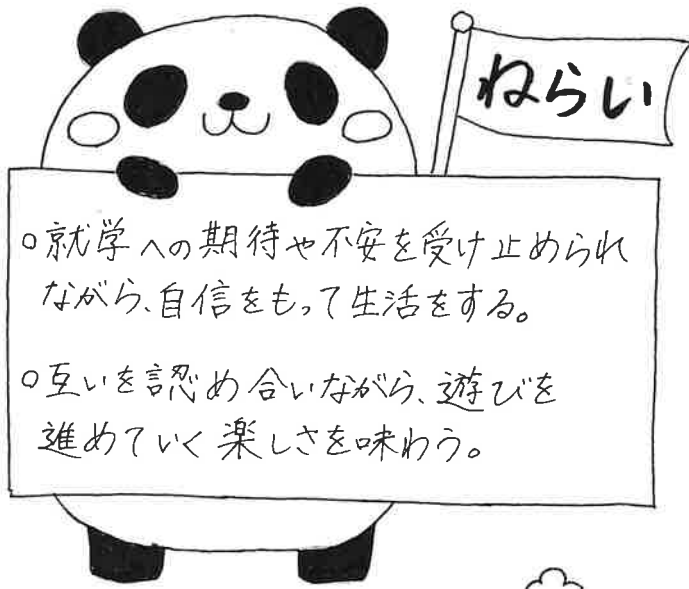 ねらい
○就学への期待や不安を受け止められ
ながら、自信をもって生活をする。
○互いを認め合いながら、遊びを
進めていく楽しさを味わう。